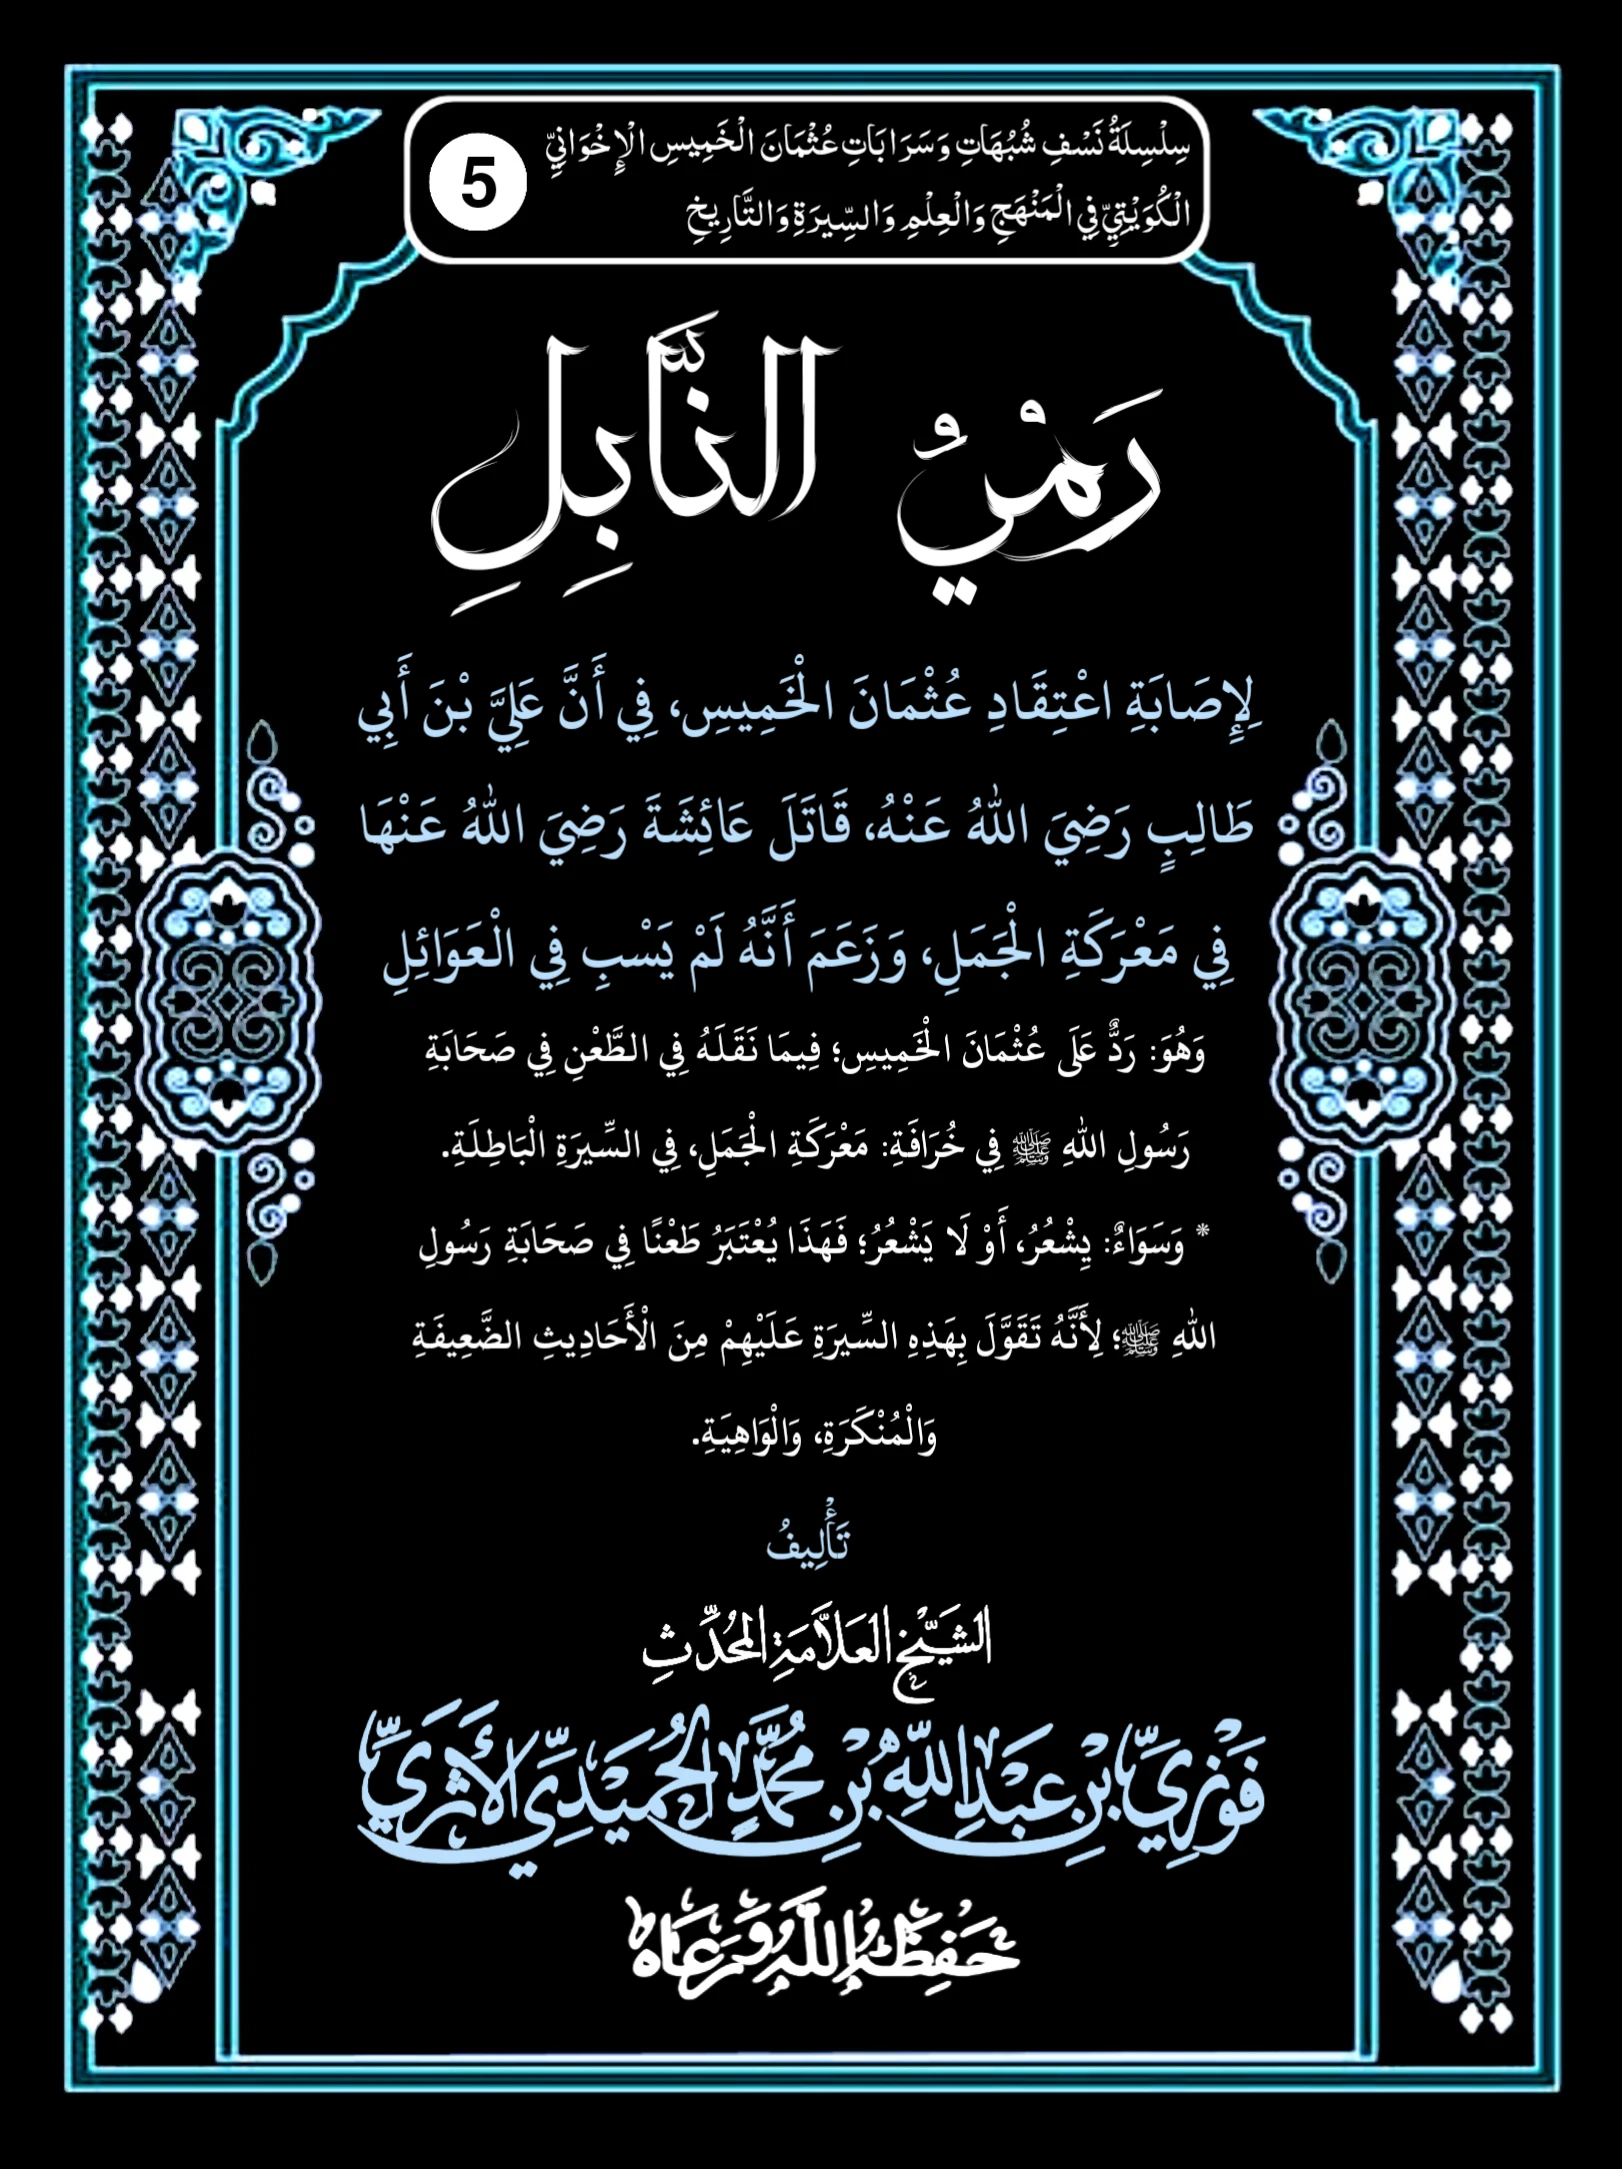 سِلْسِلَةُ نَسْفِ شُبُهَاتِ وَسَرَابَاتِ عُثْمَانَ الْخَمِيسِ الْإِخْوَانِيِّ
الْكُوَيْتِيِّ فِي الْمَنْهَجِ وَالْعِلْمِ وَالسِّيرَةِ وَالتَّارِيخِ
5
رَمْيُ النَّابِلِ
لِإِصَابَةِ اعْتِقَادِ عُثْمَانَ الْخَمِيسِ، فِي أَنَّ عَلِيَّ بْنَ أَبِي
طَالِبٍ رَضِيَ اللهُ عَنْهُ، قَاتَلَ عَائِشَةَ رَضِيَ اللهُ عَنْهَا
فِي مَعْرَكَةِ الْجَمَلِ، وَزَعَمَ أَنَّهُ لَمْ يَسْبِ فِي الْعَوَائِلِ
وَهُوَ: رَدٌّ عَلَى عُثْمَانَ الْخَمِيسِ؛ فِيمَا نَقَلَهُ فِي الطَّعْنِ فِي صَحَابَةِ
رَسُولِ اللهِ ﷺ فِي خُرَافَةِ: مَعْرَكَةِ الْجَمَلِ، فِي السِّيْرَةِ الْبَاطِلَةِ.
* وَسَوَاءٌ: يِشْعُرُ، أَوْ لَا يَشْعُرُ؛ فَهَذَا يُعْتَبَرُ طَعْنًا فِي صَحَابَةِ رَسُولِ
اللهِ ﷺ؛ لِأَنَّهُ تَقَوَّلَ بِهَذِهِ السِّيرَةِ عَلَيْهِمْ مِنَ الْأَحَادِيثِ الضَّعِيفَةِ
وَالْمُنْكَرَةِ، وَالْوَاهِيَةِ.
تَأْلِيفُ
الشَّيْخِ العَلَّامَةِ المُحَدِّثِ
فَوْزِيِّ بْنِ عَبْدِ اللَّهِ بْنِ مُحَمَّدٍ الحُمَيْدِيِّ الأَثَرِيِّ
حَفِظَهُ اللَّهُ وَرَعَاهُ